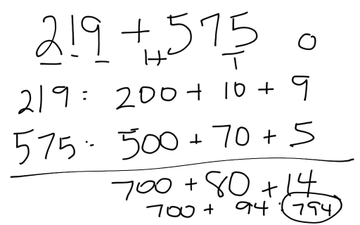 219 + 575
H T O
219: 200 + 10 + 9
575: 500 + 70 + 5
700 + 80 + 14
700 + 94 : 794